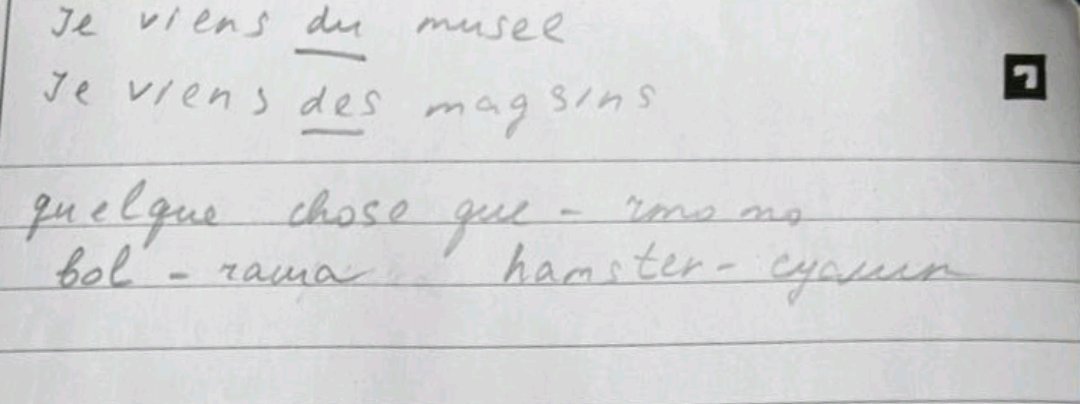 Je viens du musee
Je viens des magsins
quelque chose que - что
bol - чаша hamster - суслик